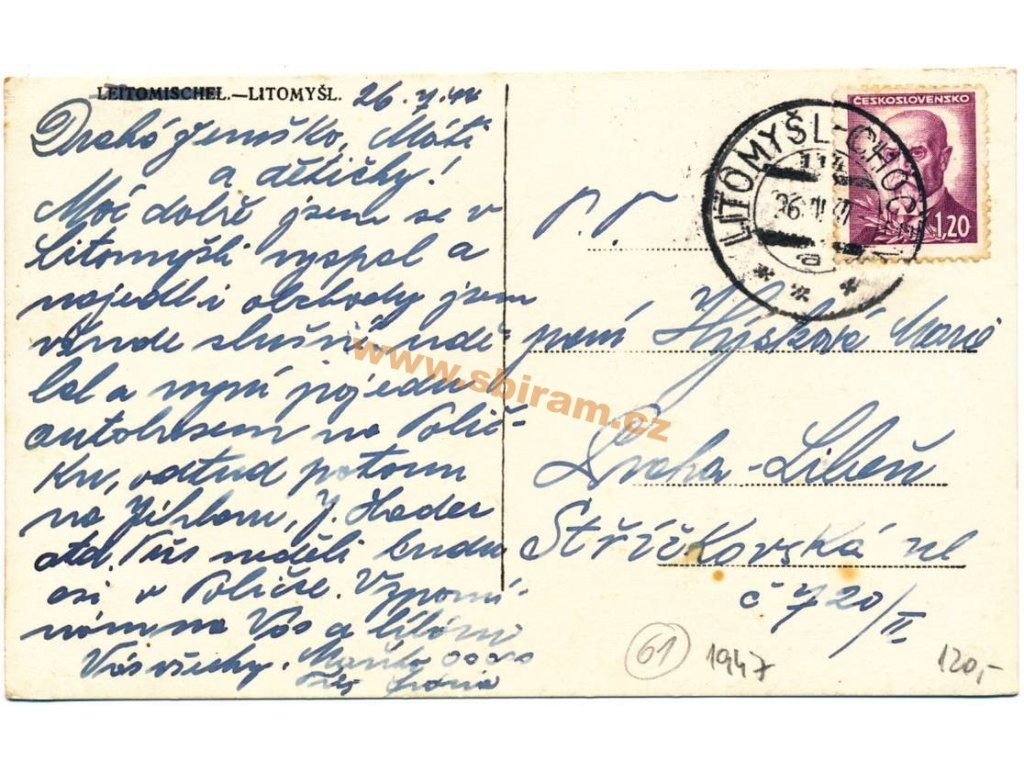 LEITOMISCHEL.—LITOMYŠL.
Drahá ženuško, Máti
a dětičky!
Moc dobře jsem se v
Litomyšli vyspal a
najedl i obchody jsem
všude slušně udě-
lal a nyní pojedu
autobusem na Polič-
ku, odtud potom
na Jihlavu, J. Hradec
atd. Přes neděli budu
asi v Poličce. Vzpomí-
nám na Vás a líbám
Vás všechny.
ČESKOSLOVENSKO
1,20
LITOMYŠL-CHOCEŇ
a
P. T.
paní Hýsková Marie
Praha-Libeň
Střížkovská ul
č 720/II.
61 1947 120,-
www.sbiram.cz